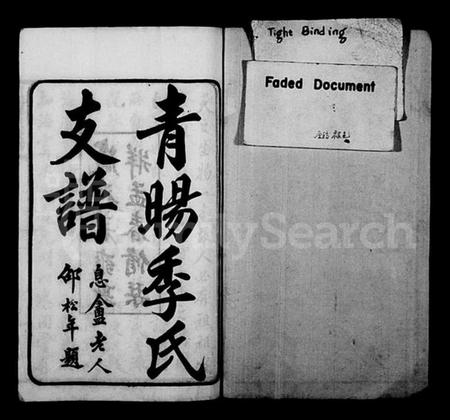 青暘季氏
支譜
息盦老人
邵松年題
Tight Binding
Faded Document
FamilySearch